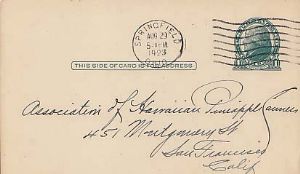 SPRINGFIELD
AUG 29
1923
THIS SIDE OF CARD IS FOR ADDRESS
Association of Hawaiian Pineapple Canners
451 Montgomery St
San Francisco
Calif